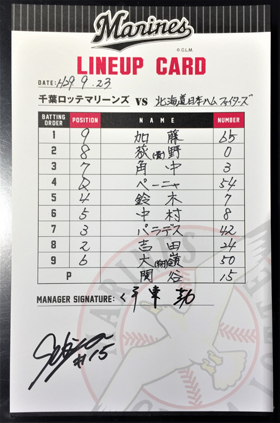 Marines
© C.L.M.
LINEUP CARD
DATE: H29 9.23
千葉ロッテマリーンズ VS 北海道日本ハムファイターズ
BATTING ORDER POSITION NAME NUMBER
1 9 加藤 65
2 8 荻(貴)野 0
3 7 角中 3
4 D ペーニャ 54
5 4 鈴木 7
6 5 中村 8
7 3 パラデス 42
8 2 吉田 24
9 6 大(翔)嶺 50
P 関谷 15
MANAGER SIGNATURE:
#15